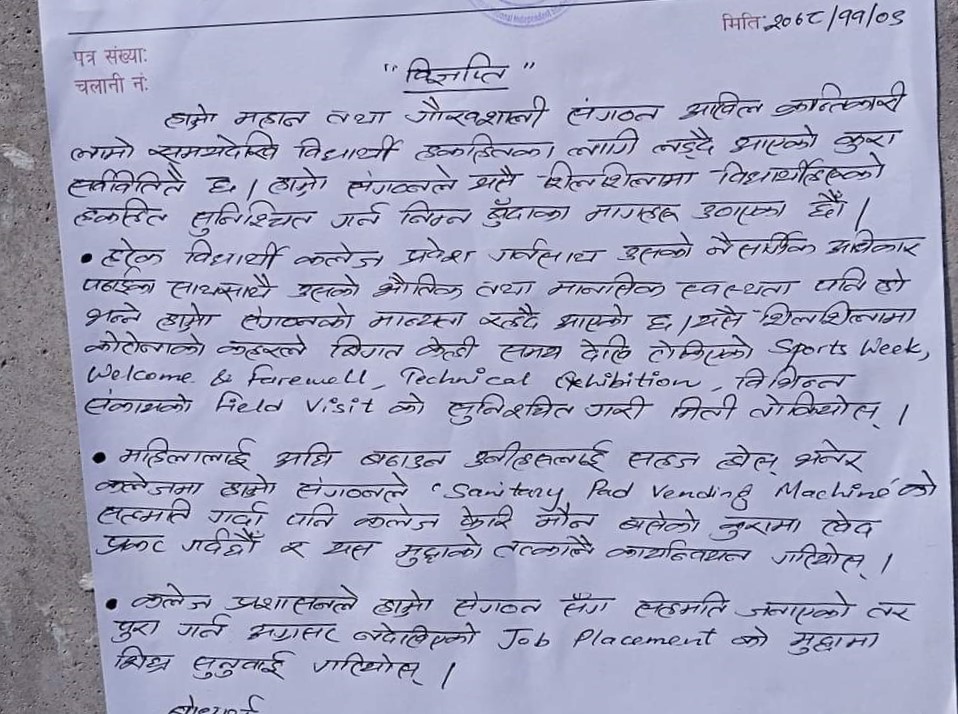 मिति: २०७८/११/०९
पत्र संख्या:
चलानी नं:
"विज्ञप्ति"
हाम्रो महान तथा गौरवशाली संगठन अखिल क्रान्तिकारी
लामो समयदेखि विद्यार्थी हकहितका लागी लड्दै आएको कुरा
सर्वविदितै छ। हाम्रो संगठनले यसै शिलशिलामा विद्यार्थीहरूको
हकहित सुनिश्चित गर्न निम्न बुँदाका मागहरू उठाएका छौं।
• हरेक विद्यार्थी कलेज प्रवेश गर्नसाथ उसको नैसर्गिक अधिकार
पढाईका साथसाथै उसको भौतिक तथा मानसिक स्वस्थता पनि हो
भन्ने हाम्रो संगठनको मान्यता रहँदै आएको छ। यसै शिलशिलामा
कोरोनाको कहरले बिगत केही समय देखि रोकिएको Sports Week,
Welcome & Farewell, Technical Exhibition, विभिन्न
संकायको Field Visit को सुनिश्चित गरी मिती तोकियोस्।
• महिलालाई अघि बढाउन उनीहरूलाई सहज होस् भनेर
कलेजमा हाम्रो संगठनले 'Sanitary Pad Vending Machine' को
सहमति गर्दा पनि कलेज फेरि मौन बसेको कुरामा खेद
प्रकट गर्दछौं र यस मुद्दाको तत्कालै कार्यान्वयन गरियोस्।
• कलेज प्रशासनले हाम्रो संगठन सँग सहमति जनाएको तर
पुरा गर्न अग्रसर नदेखिएको Job Placement को मुद्दामा
शिघ्र सुनुवाई गरियोस्।